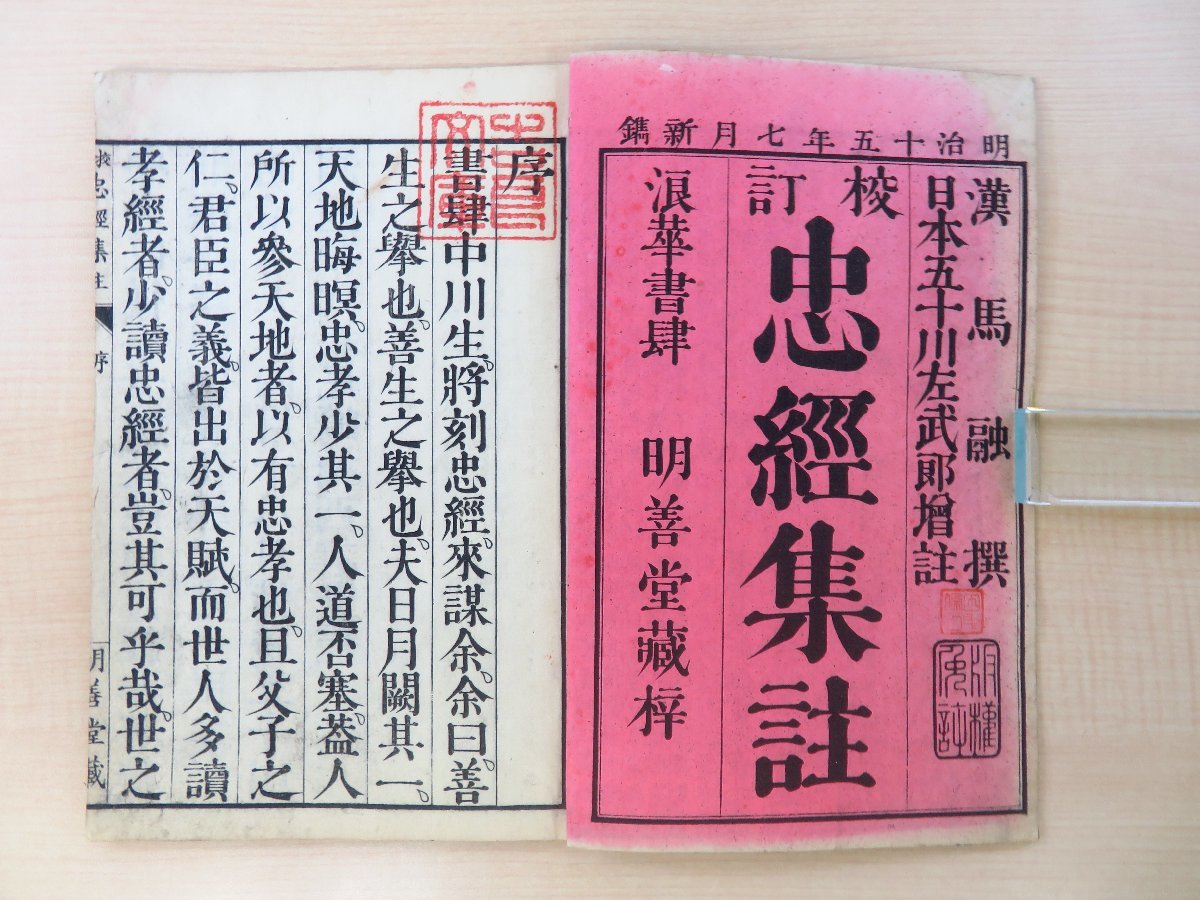 明治十五年七月新鐫
漢馬融撰
日本五十川左武郎增註
版權免許
校訂
忠經集註
浪華書肆 明善堂藏梓
序
書肆中川生。將刻忠經。來謀余。余曰。善
生之擧也。善生之擧也。夫日月闕其一。
天地晦暝。忠孝少其一。人道否塞。蓋人
所以參天地者。以有忠孝也。且父子之
仁。君臣之義。皆出於天賦。而世人多讀
孝經者。少讀忠經者。豈其可乎哉。世之
忠經集註 序 明善堂藏